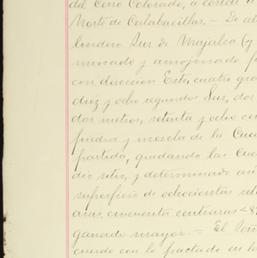 del Cerro Colorado, a corde a
Norte de Calabacillas. — De al
lindero Sur de Mojalca (y
mirado y amojonado p
con direccion Este, cuatro gra
diez y ocho segundos Sur, dos
dos metros, setenta y ocho cen
piedra y mezcla de la Cue
partida, quedando las Cue
die seis, y determinado as
superficie de ochocientas sete
arias, cincuenta centiaras
ganado mayor. — El Señ
cuerdo con lo pactado en la